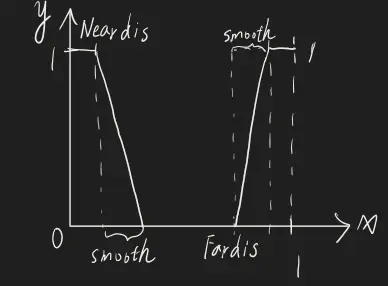 y
Neardis
smooth
1
1
0
smooth
Fardis
x
1